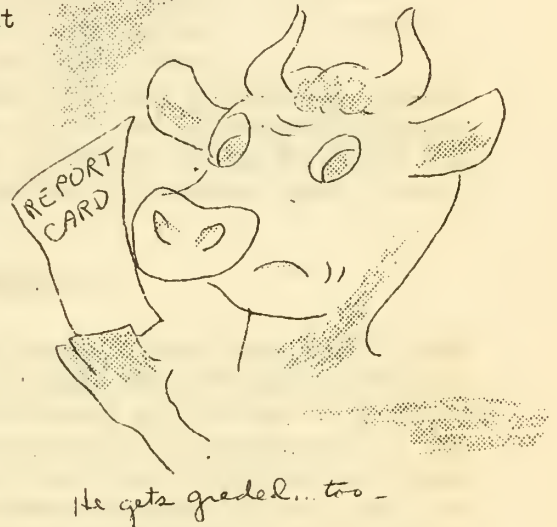 t
REPORT
CARD
He gets graded... too -